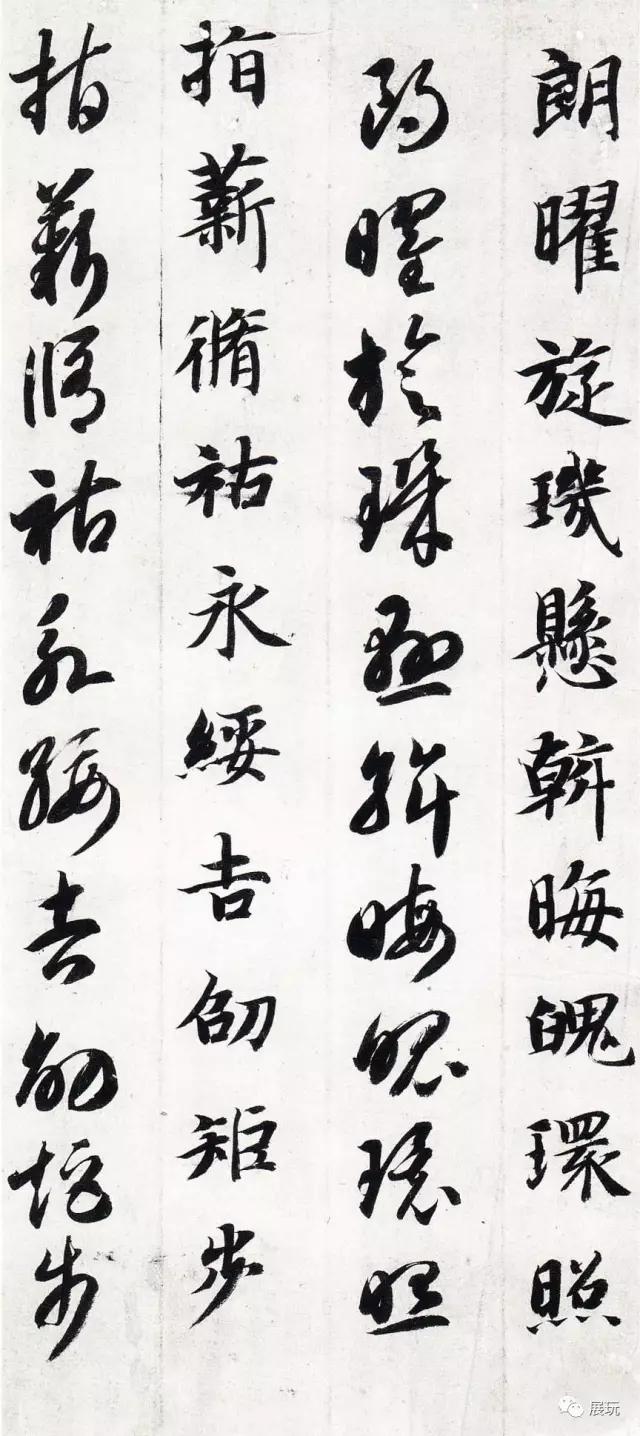 朗曜旋璣懸斡晦魄環照
朗曜旋璣懸斡晦魄環照
指薪脩祜永綏吉劭矩步
指薪脩祜永綏吉劭矩步
展玩